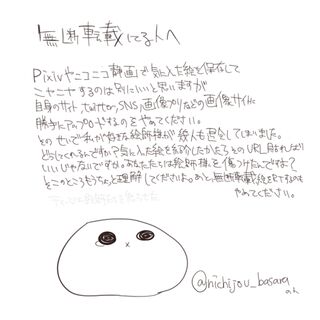 無断転載してる人へ
Pixivやニコニコ静画で気に入った絵を保存して
ニヤニヤするのは別にいいと思いますが
自身のサイト、twitter、SNS、画像プリなどの画像サイトに
勝手にアップロードするのをやめてください。
そのせいで私が好きな絵師様が何人も退会してしまいました。
どうしてくれるんですか?気に入った絵を紹介したかったらURL貼ればいい
いいじゃないですか。あなたたちは絵師様を傷つけたんですよ?
そこのところもうちょっと理解してくださいよ。あと、無断転載絵をRTするのも
やめてください。
@nichijou_basara
のん